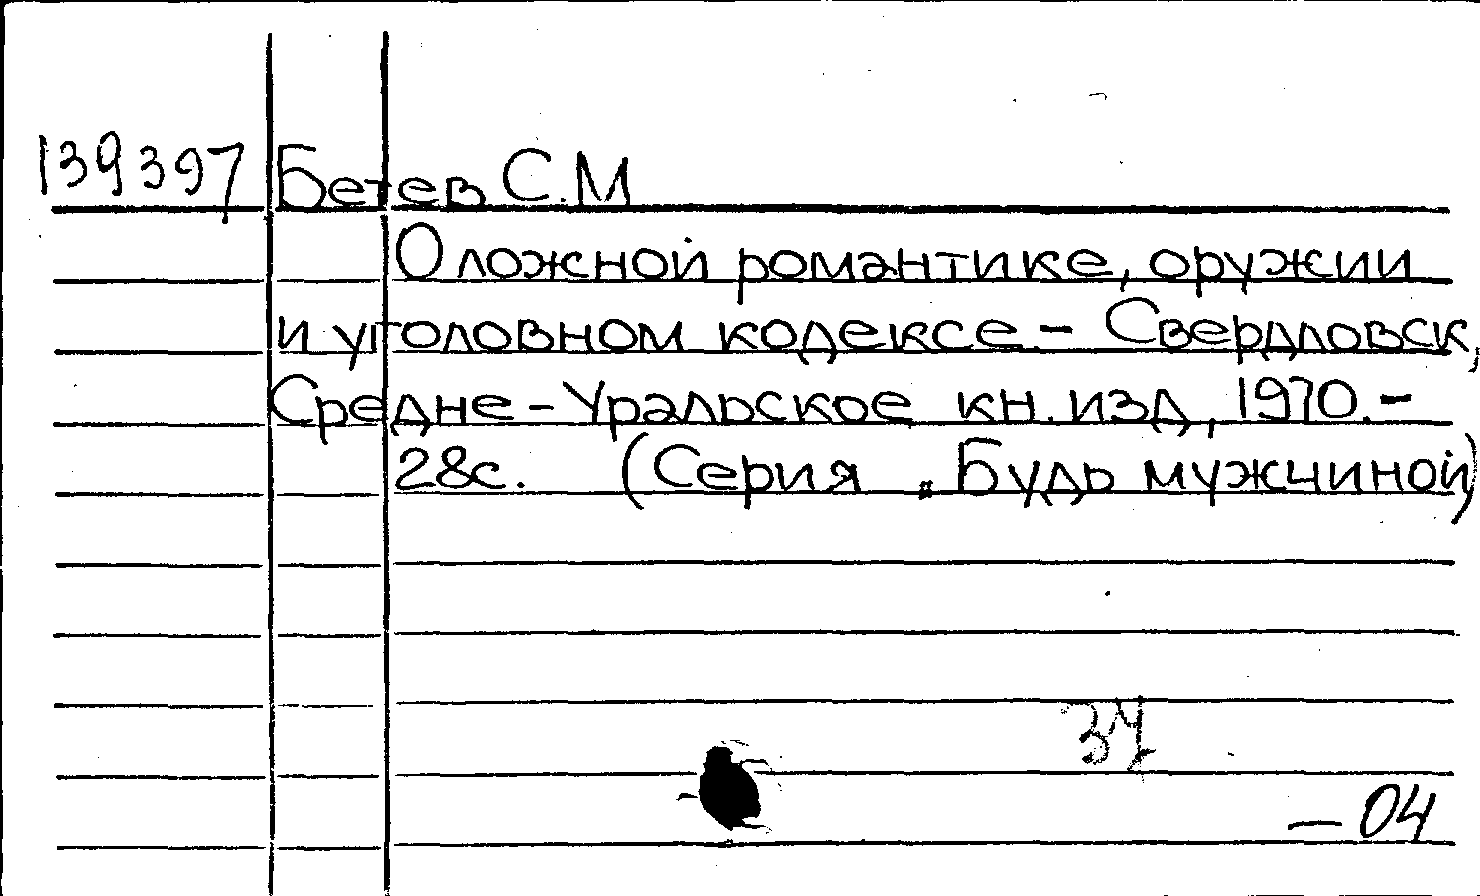 139397 Бетев С.М
О ложной романтике, оружии
и уголовном кодексе - Свердловск,
Средне-Уральское кн. изд, 1970.-
28с. (Серия „Будь мужчиной)
34
- 04